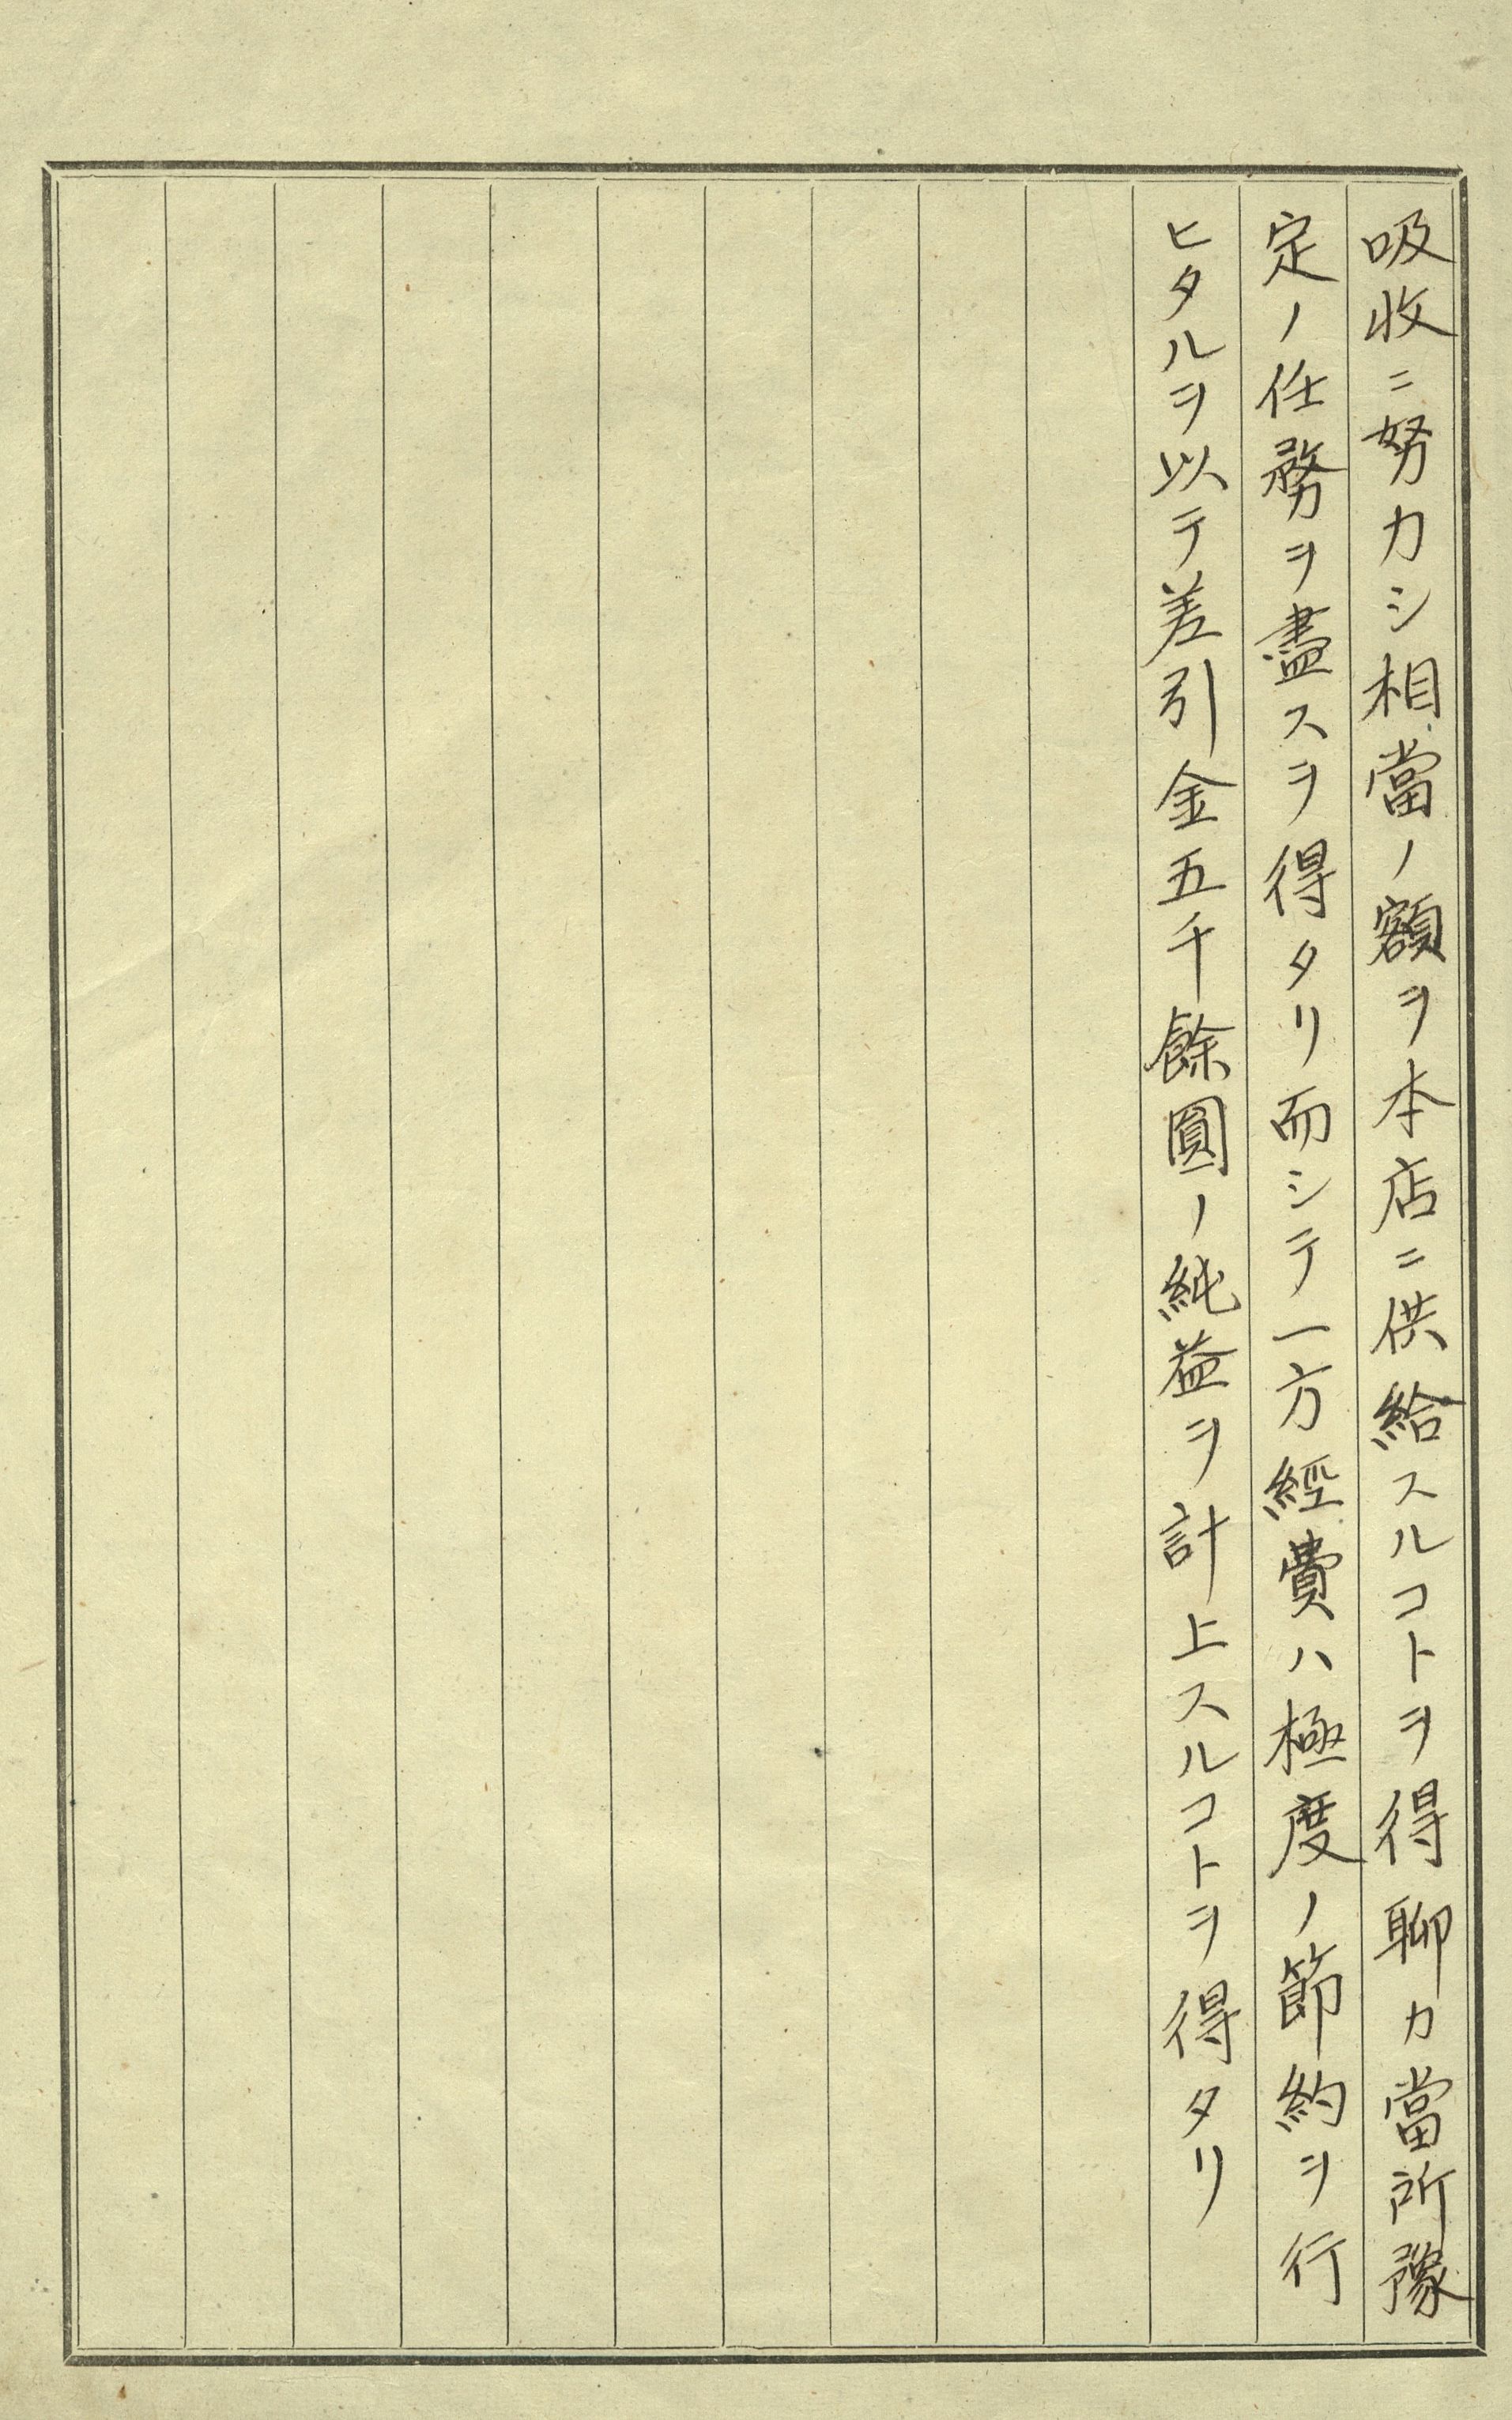 吸收ニ努力シ相當ノ額ヲ本店ニ供給スルコトヲ得聊カ當所豫
定ノ任務ヲ盡スヲ得タリ而シテ一方經費ハ極度ノ節約ヲ行
ヒタルヲ以テ差引金五千餘圓ノ純益ヲ計上スルコトヲ得タリ